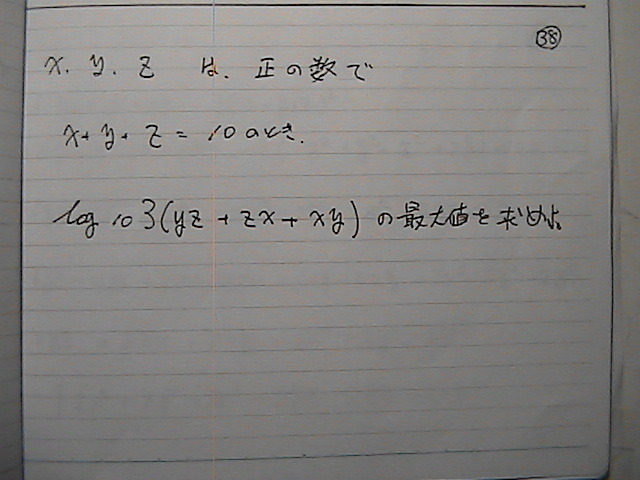 ㊳
x. y. z は. 正の数で
x+y+z=10のとき.
log 10 3(yz+zx+xy) の最大値を求めよ